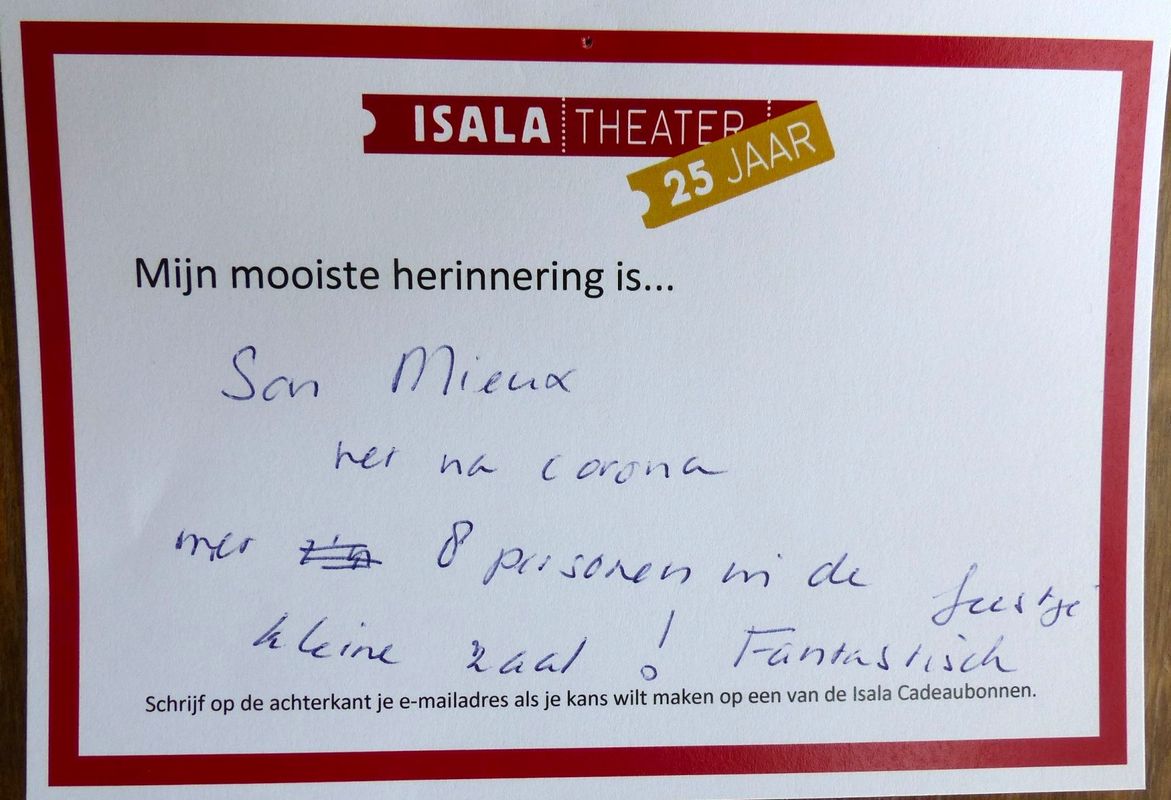 ISALA THEATER
25 JAAR
Mijn mooiste herinnering is...
Son Mieux
net na corona
met 8 personen in de
feestje
kleine zaal! Fantastisch
Schrijf op de achterkant je e-mailadres als je kans wilt maken op een van de Isala Cadeaubonnen.